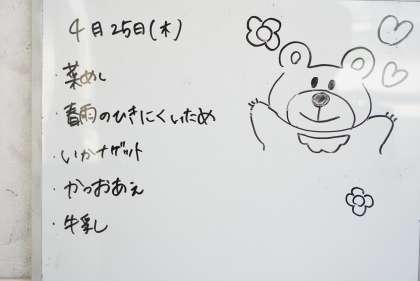 4月25日(木)
・菜めし
・春雨のひきにくいため
・いかナゲット
・かつおあえ
・牛乳